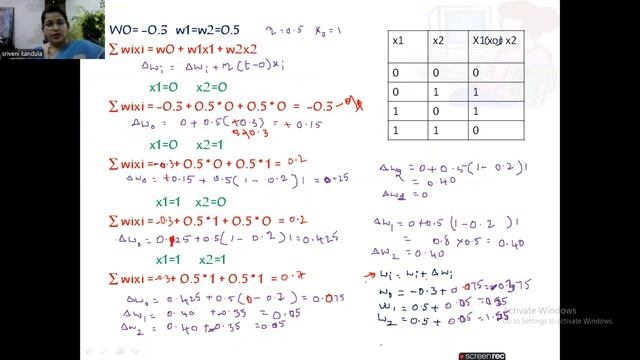 sriveni kandula
W0= -0.3 w1=w2=0.5 η=0.5 x₀=1
∑ wixi = w0 + w1x1 + w2x2
Δwᵢ = Δwᵢ + η(t-o)xᵢ
x1=0 x2=0
∑ wixi = -0.3 + 0.5*0 + 0.5*0 = -0.3
Δw₀ = 0 + 0.5(+0.3) = +0.15
0+0.3
x1=0 x2=1
∑ wixi = -0.3+ 0.5*0 + 0.5*1 = 0.2
Δw₀ = +0.15 + 0.5(1-0.2)1 = 0.25
x1=1 x2=0
∑ wixi = -0.3+ 0.5*1 + 0.5*0 = 0.2
Δw₀ = 0.25 + 0.5(1-0.2)1 = 0.425
x1=1 x2=1
∑ wixi = -0.3+ 0.5*1 + 0.5*1 = 0.7
Δw₀ = 0.425 + 0.5(0-0.7) = 0.075
Δw₁ = 0.40 + -0.35 = 0.05
Δw₂ = 0.40 + -0.35 = 0.05
x1 x2 X1(xor) x2
0 0 0
0 1 1
1 0 1
1 1 0
Δw₂ = 0 + 0.5(1-0.2)1
= 0.40
Δw₁ = 0
Δw₁ = 0 + 0.5(1-0.2)1
= 0.8 × 0.5 = 0.40
Δw₂ = 0.40
→ wᵢ = wᵢ + Δwᵢ
w₀ = -0.3 + 0.075 =
w₁ = 0.5 + 0.05 =
w₂ = 0.5 + 0.05 =
Activate Windows
Go to Settings to activate Windows.
screenrec